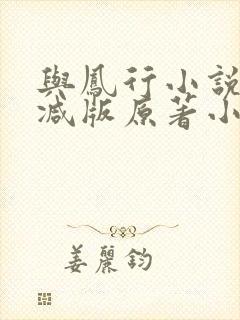 與鳳行小說
減版原著小
姜麗鈞